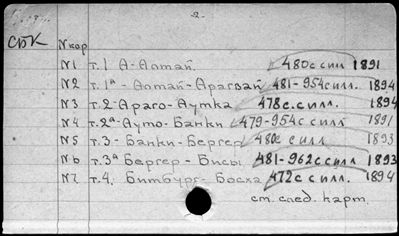 -2-
СБК
№ кор
№1 т.1 А-Алтай 480 с с илл 1891
№2 т.1ª - Алтай-Арагвай 481-954 с илл. 1894
№3 т.2-Араго-Аутка 478 с. с илл. 1894
№4 т.2ª-Ауто-Банки 479-954 с с илл 1891
№5 т.3-Банки-Бергер 480 с с илл 1893
№6 т.3ª Бергер-Бисы 481-962 с с илл 1893
№7 т.4. Битбург-Босха 472 с с илл. 1894
см. след. карт.